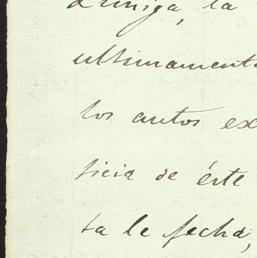 Zuñiga, la
ultimamente
los autos ex
ticia de éste
ta la fecha,